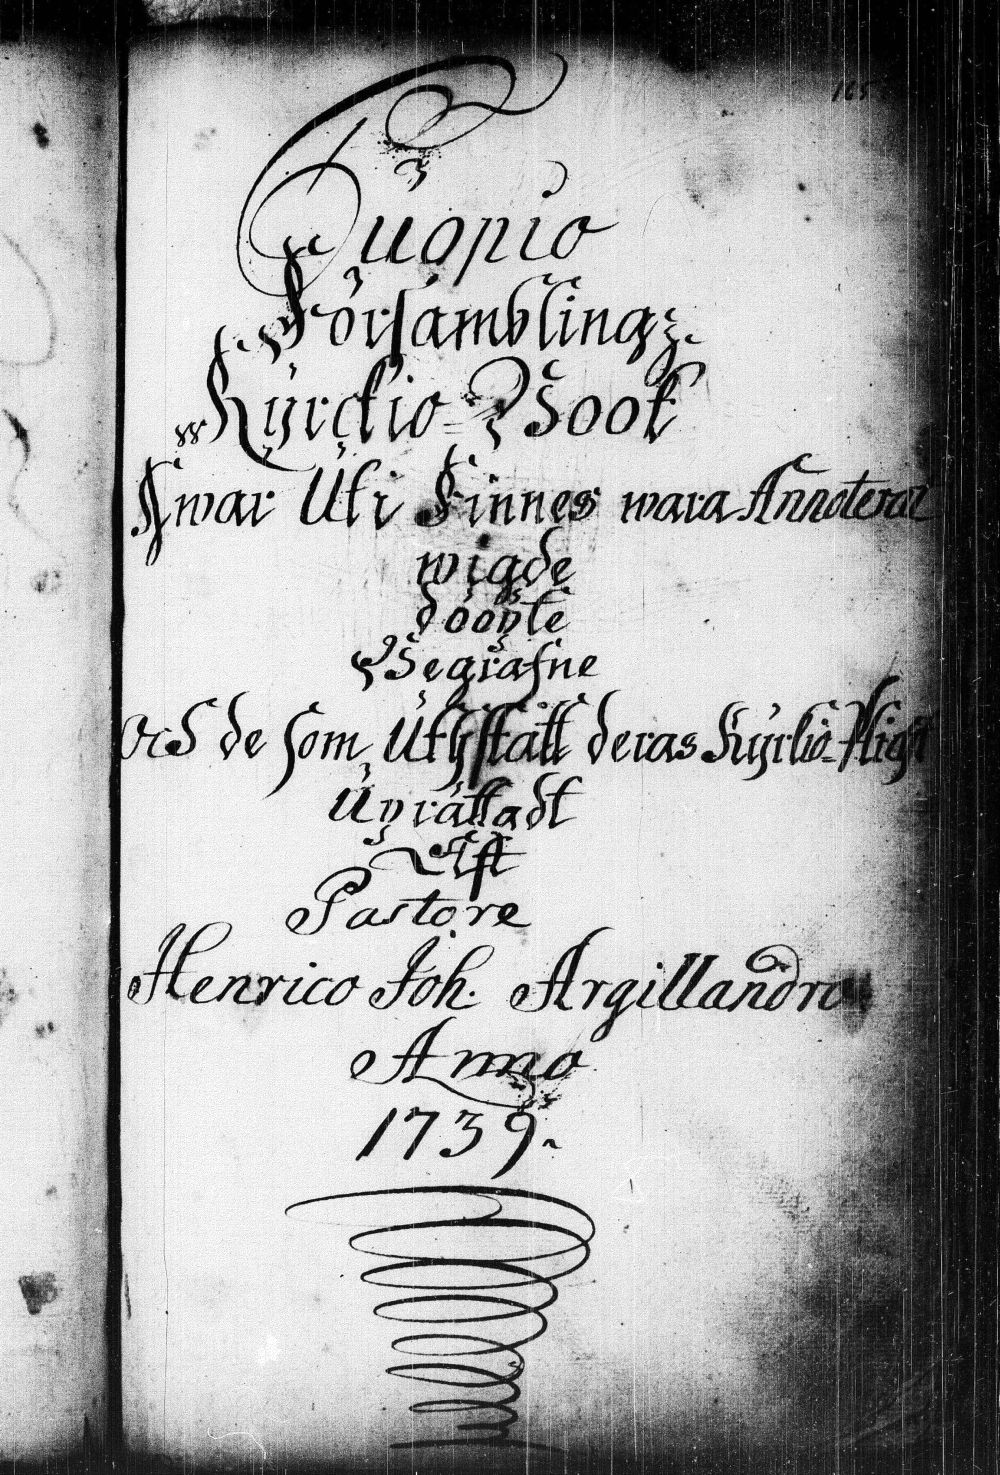 165
Cuopio
Församblingz
Kyrckio-Book
Hwar Uti Finnes wara Annoterat
wigde
döópte
Begrafne
och de som Uthstått deras Kyrkio-Plicht
Uprättadt
Af
Pastore
Henrico Joh. Argillandro
Anno
1739.